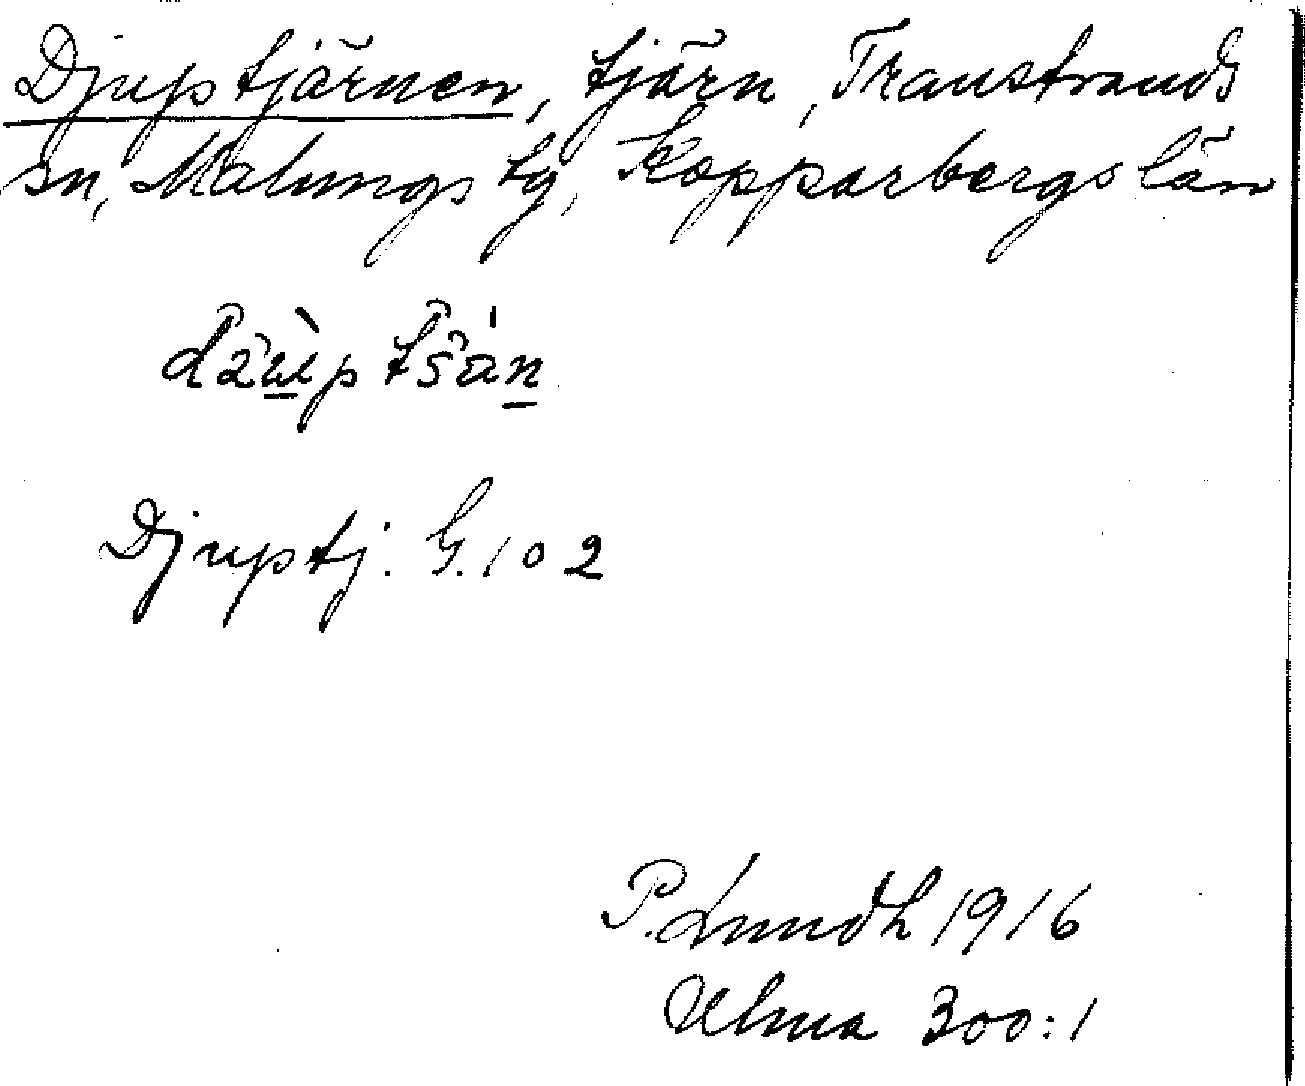 Djuptjärnen, tjärn, Transtrands
sn, Malungs tg, Kopparbergs län
Djuptj. G. 102
P. Lundh 1916
Ulma 300:1